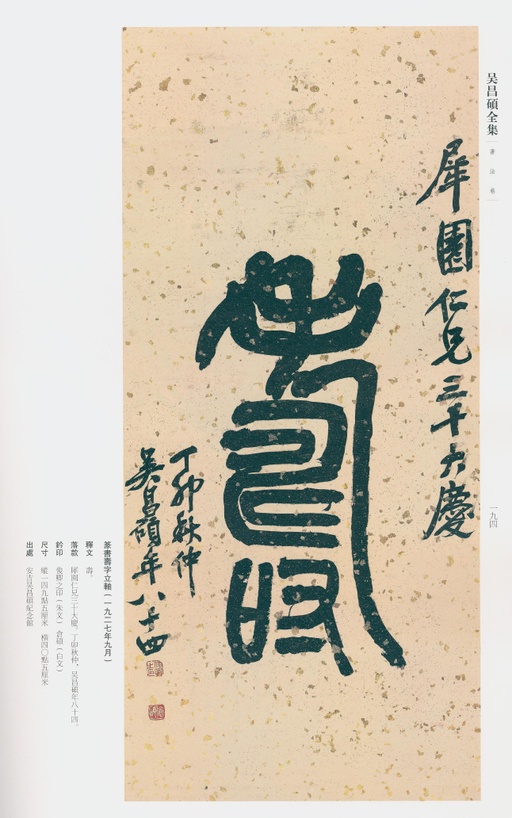 吴昌碩全集
書法卷
一九四
犀園仁兄三十大慶
壽
丁卯秋仲
吴昌碩年八十四
篆書壽字立軸（一九二七年九月）
釋文 壽。
落款 犀園仁兄三十大慶。丁卯秋仲，吴昌碩年八十四。
鈐印 俊卿之印（朱文） 倉碩（白文）
尺寸 縱一四九點五厘米 橫四〇點五厘米
出處 安吉吴昌碩紀念館